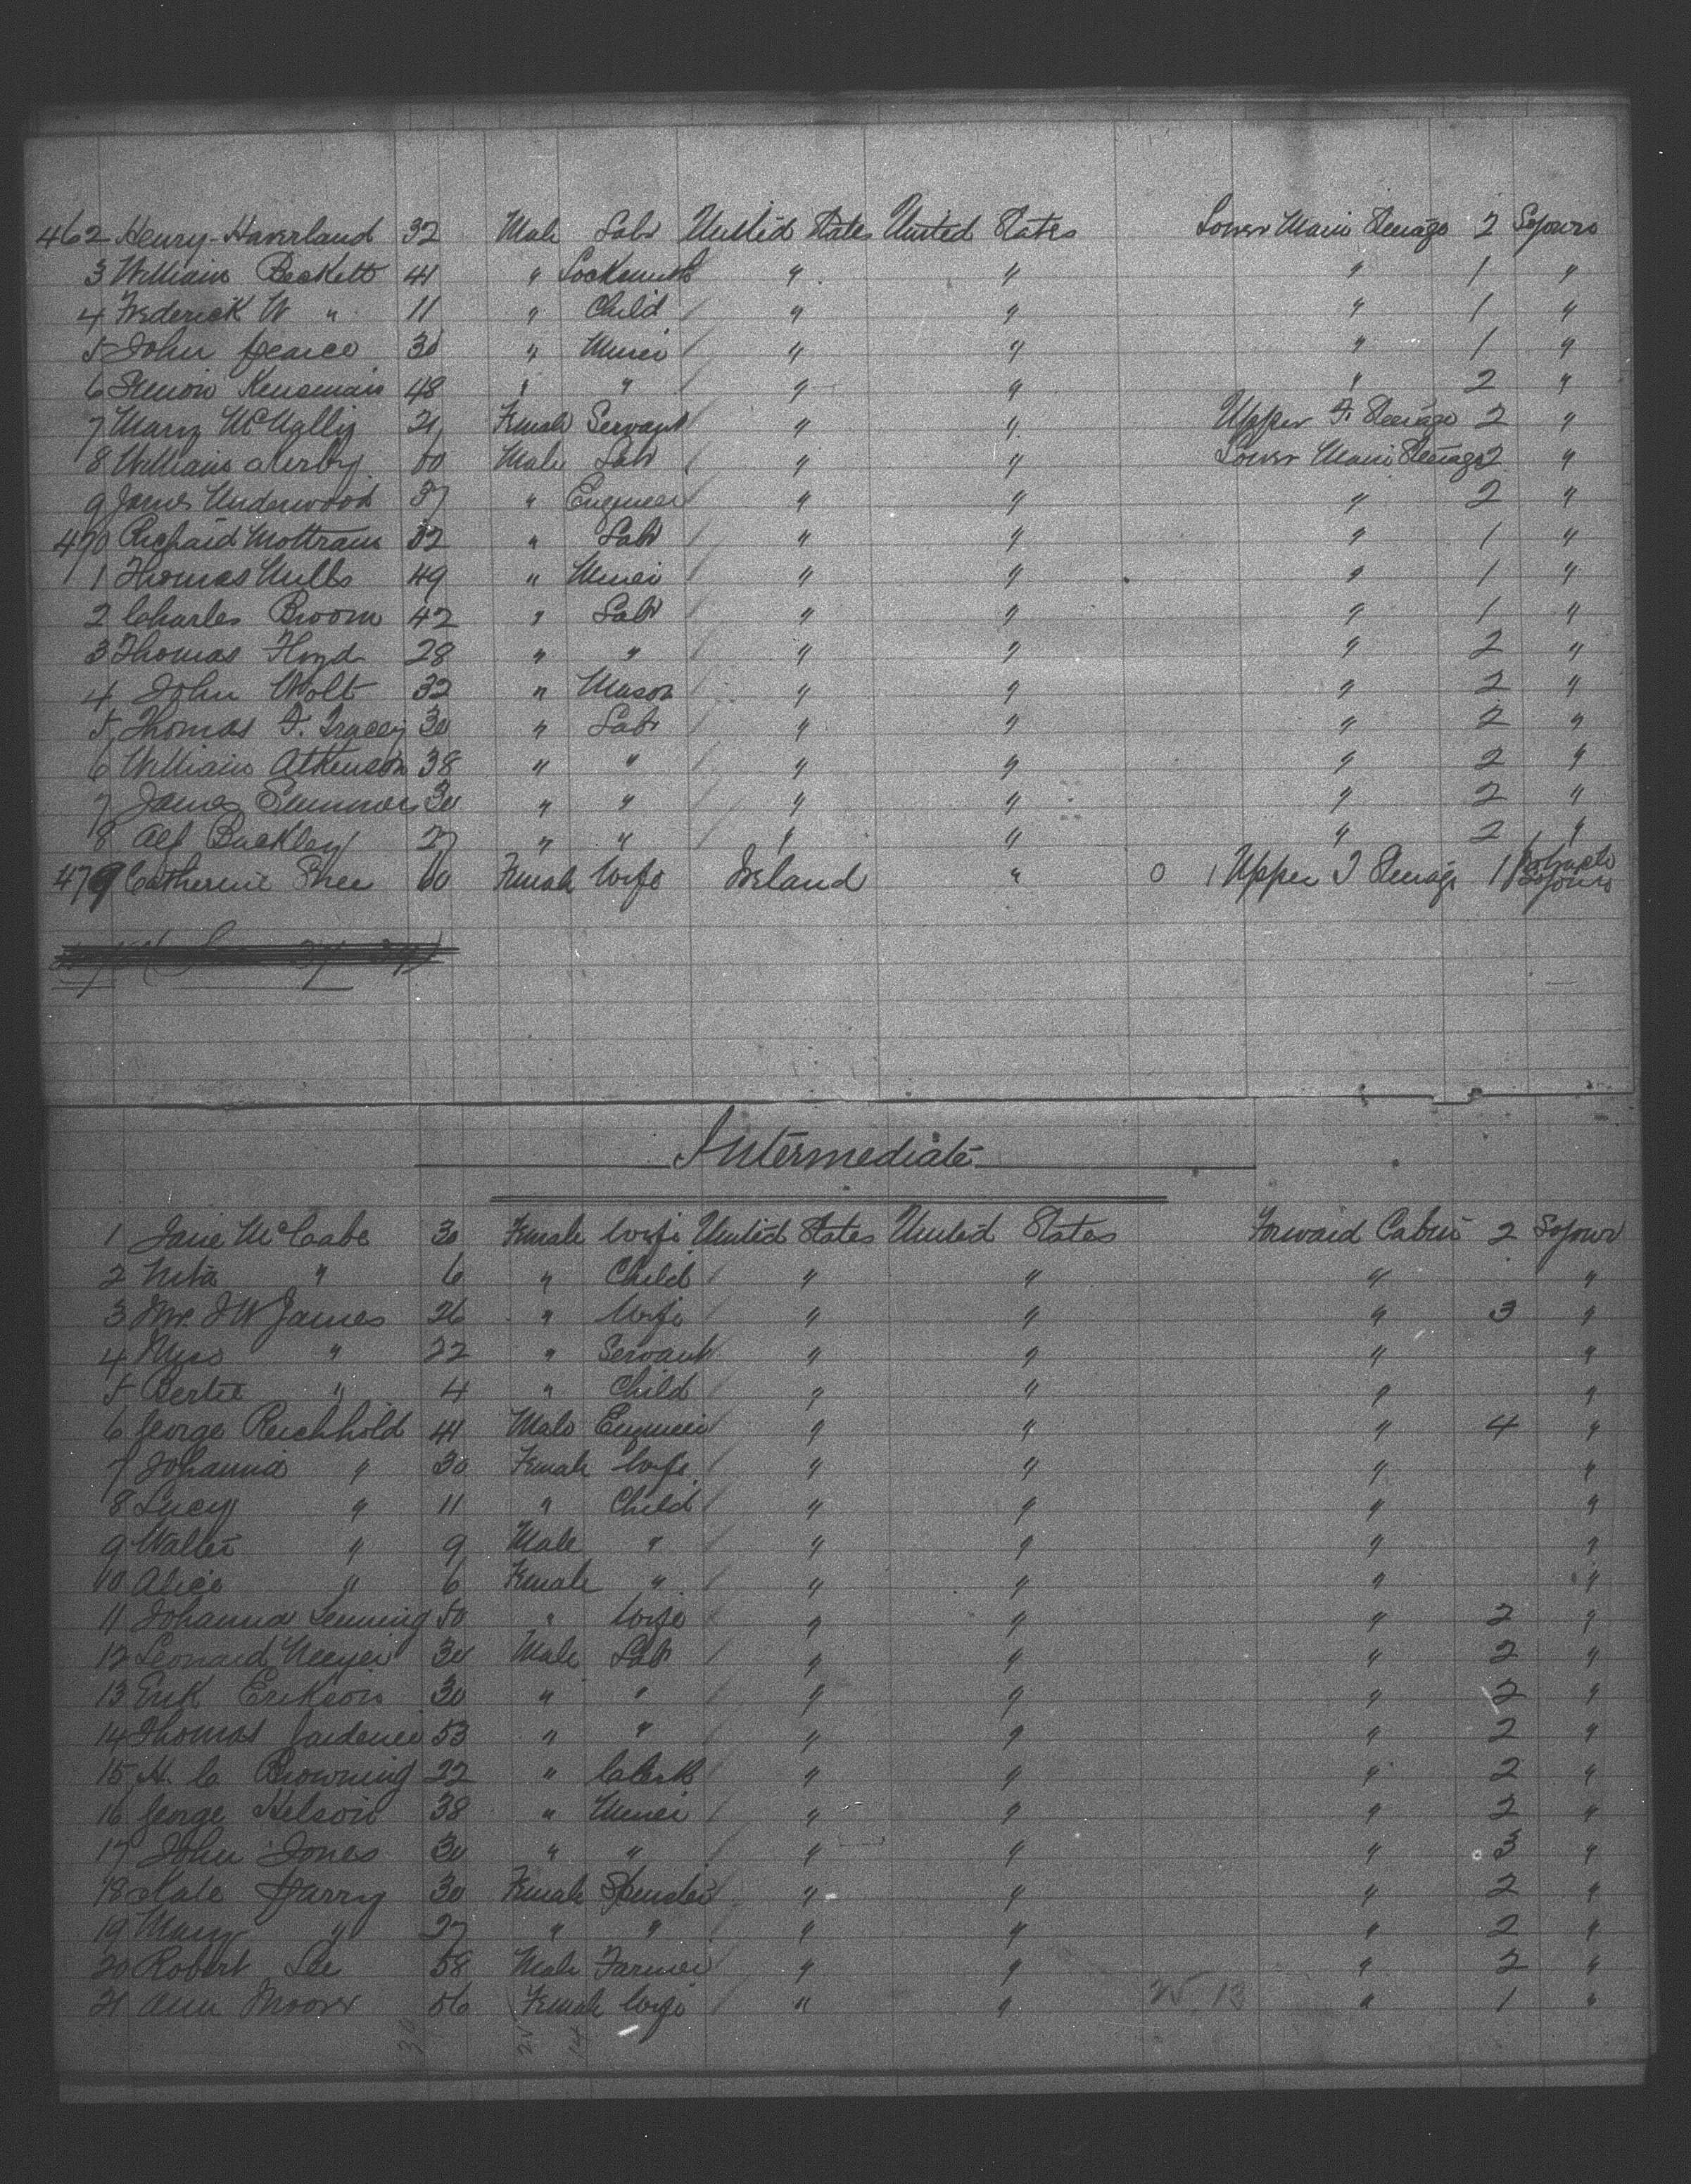 462 Henry Haverland 32 Male Labr United States United States Lower Main Steerage 2 Sojourn
3 William Beckett 41 " Locksmith " " " 1 "
4 Frederick W " 11 " Child " " " 1 "
5 John Pearce 30 " Miner " " " 1 "
6 48 " " " " " 2 "
7 Mary McNally 21 Female Servant " " Upper F. Steerage 2 "
8 William Kirby 60 Male Labr " " Lower Main Steerage 2 "
9 James Underwood 37 " Engineer " " " 2 "
470 Richard Mottram 32 " Labr " " " 1 "
1 Thomas Mills 49 " Miner " " " 1 "
2 Charles Broom 42 " Labr " " " 1 "
3 Thomas Floyd 28 " " " " " 2 "
4 John Holt 32 " Mason " " " 2 "
5 Thomas F. Tracey 30 " Labr " " " 2 "
6 William Atkinson 38 " " " " " 2 "
7 James Summers 30 " " " " " 2 "
8 Alf Buckley 27 " " " " " 2 "
479 Catherine Shee 60 Female Wife Ireland " 0 1 Upper F Steerage 1
Intermediate
1 Jane McCabe 30 Female Wife United States United States Forward Cabin 2 Sojour
2 Nita " 6 " Child " " " "
3 Mrs J W James 26 " Wife " " " 3 "
4 Miss " 22 " Servant " " " "
5 Bertie " 4 " Child " " " "
6 George Reichhold 41 Male Engineer " " " 4 "
7 Johanna " 30 Female Wife " " " "
8 Lucy " 11 " Child " " " "
9 Walter " 9 Male " " " " "
10 Alice " 6 Female " " " " "
11 Johanna Lenning 50 " Wife " " " 2 "
12 Leonard Meyer 30 Male Labr " " " 2 "
13 Erik Erikson 30 " " " " " 2 "
14 Thomas Gardener 53 " " " " " 2 "
15 H. C Browning 22 " Clerk " " " 2 "
16 George Nelson 38 " Miner " " " 2 "
17 John Jones 30 " " " " " 3 "
18 Kate Harry 30 Female Spinster " " " 2 "
19 Mary " 27 " " " " " 2 "
20 Robert Lee 58 Male Farmer " " " 2 "
21 Ann Moore 56 Female Wife " " " 1 "